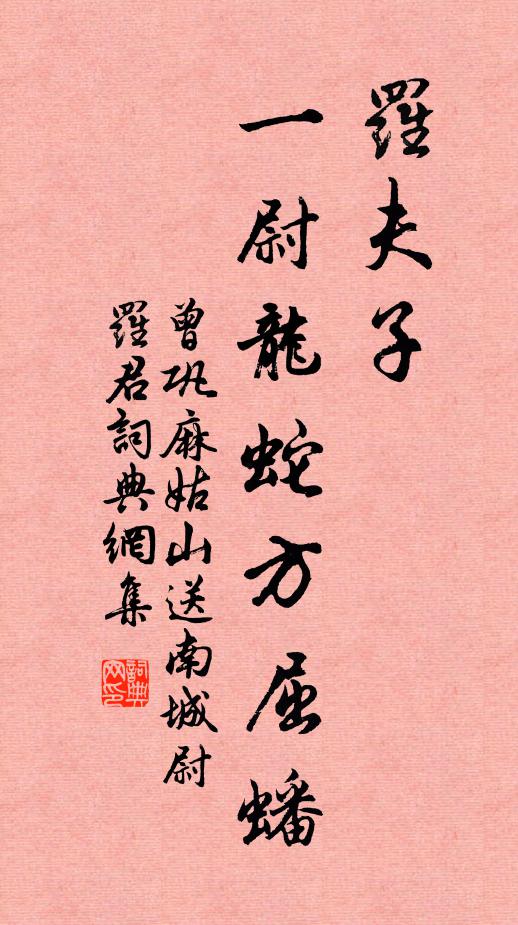 羅夫子
一尉龍蛇方屈蟠
曾鞏麻姑山送南城尉
羅君詞典網集
詞典
网印